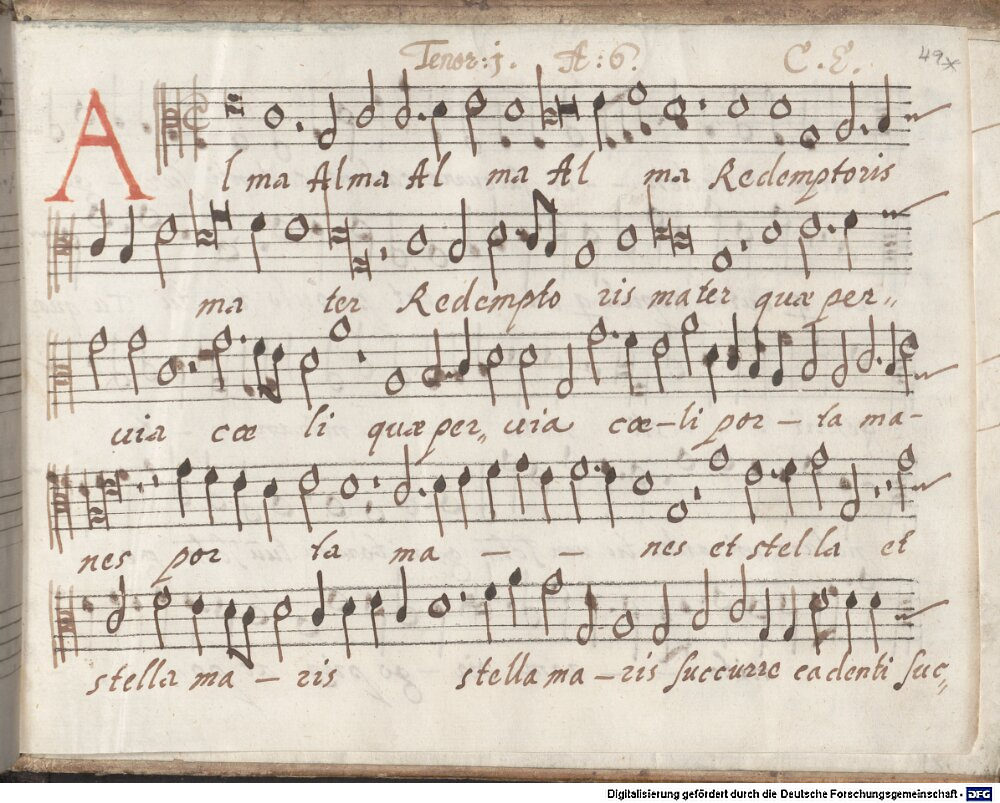 Tenor: j. A: 6? C. E. 49
Al ma Alma Al ma Al ma Redemptoris
ma ter Redempto ris mater quæ per„
uia cœ li quæ per„ uia cœ-li por-ta ma-
nes por ta ma - - nes et stella et
stella ma-ris stella ma-ris succurre cadenti suc„
Digitalisierung gefördert durch die Deutsche Forschungsgemeinschaft - DFG